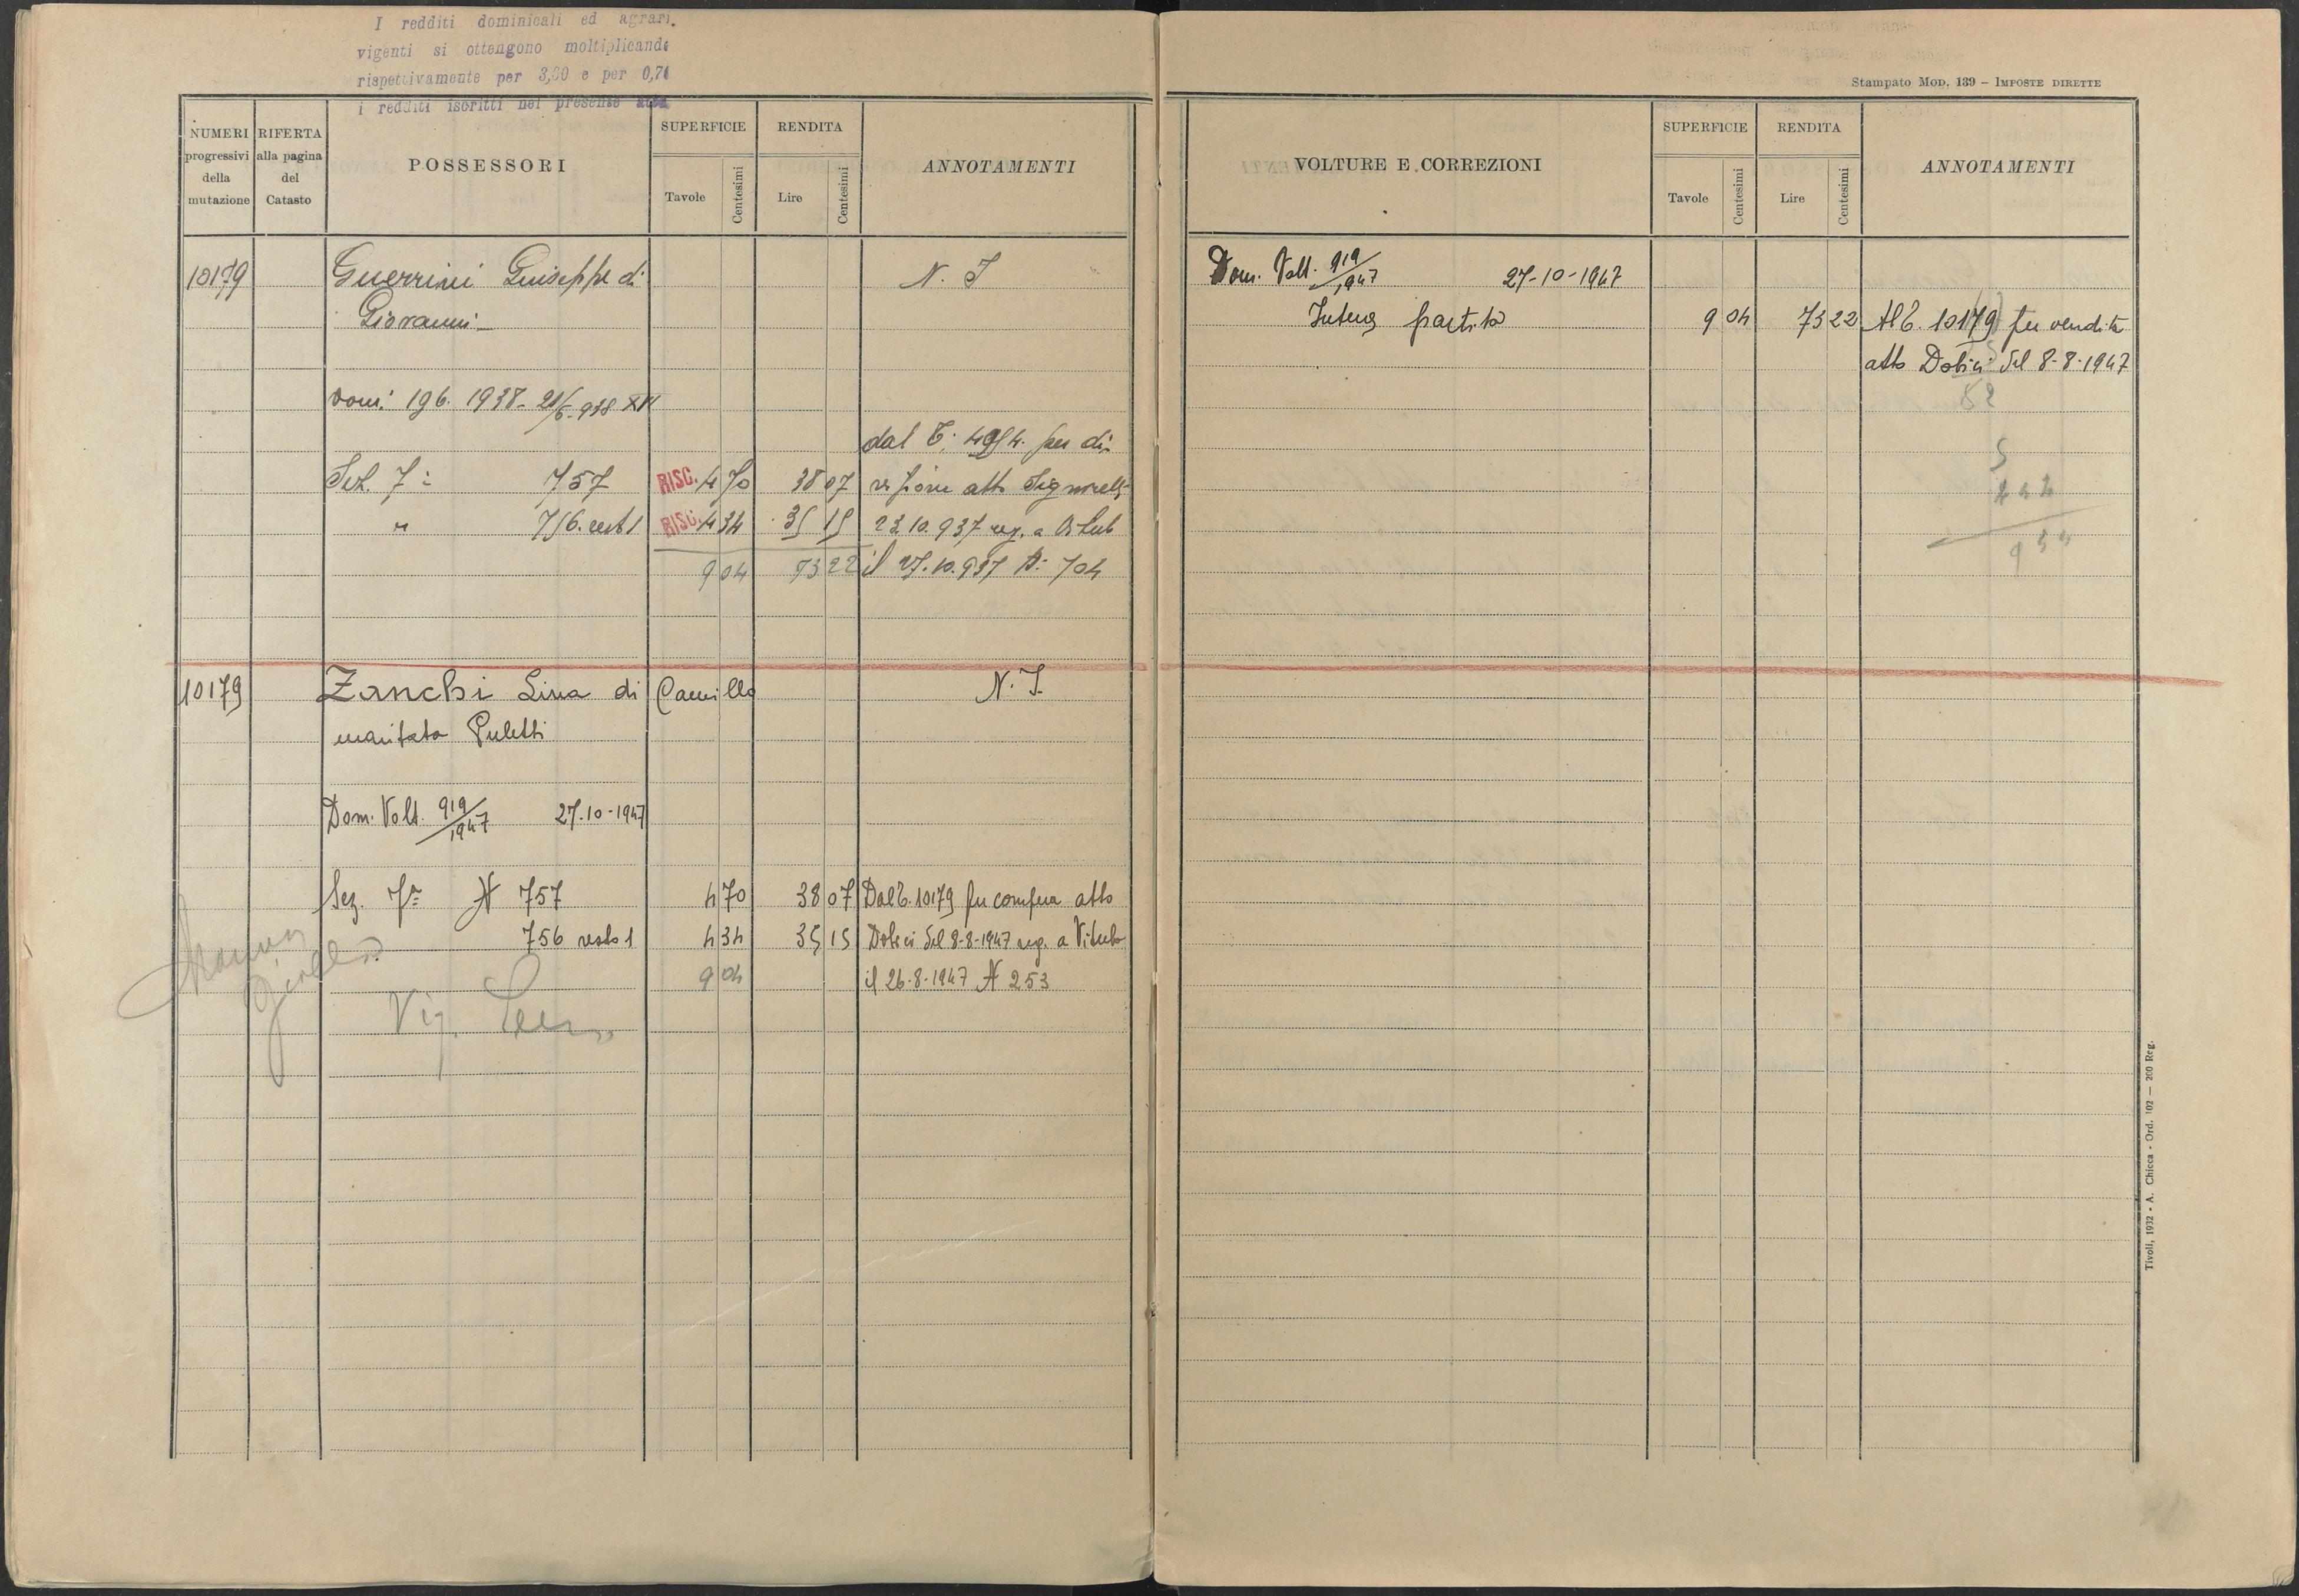 I redditi dominicali ed agrari
vigenti si ottengono moltiplicando
rispettivamente per 3,30 e per 0,70
i redditi iscritti nel presente
NUMERI progressivi della mutazione
RIFERTA alla pagina del Catasto
POSSESSORI
SUPERFICIE
Tavole Centesimi
RENDITA
Lire Centesimi
ANNOTAMENTI
10179 Guerrini Giuseppe di N. I
Giovanni
196. 1938 - 21/6-938 XVI
dal 4954. per di
Sez. 7a 757 RISC. 4 70 38 07 atto
" 756. rest 1 RISC. 4 34 35 15 23.10.937 reg. a
9 04 73 22 il 27.10.937 N: 704
10179 Zanchi Lina di Camillo N. I.
maritata Puletti
Dom. Volt. 919/1947 27-10-1947
Sez. 7a N 757 4 70 38 07 Dal 10179 per compera atto
756 resto 1 4 34 35 15 del 8-8-1947 reg. a Viterbo
9 04 il 26-8-1947 N 253
Vig.
Stampato Mod. 139 – IMPOSTE DIRETTE
VOLTURE E CORREZIONI
SUPERFICIE
Tavole Centesimi
RENDITA
Lire Centesimi
ANNOTAMENTI
Dom. Volt. 919/1947 27-10-1947
Intera partita 9 04 73 22 Al 10179 per vendita
atto del 8-8-1947
82
5
954
Tivoli, 1932 - A. Chicca - Ord. 102 — 200 Reg.